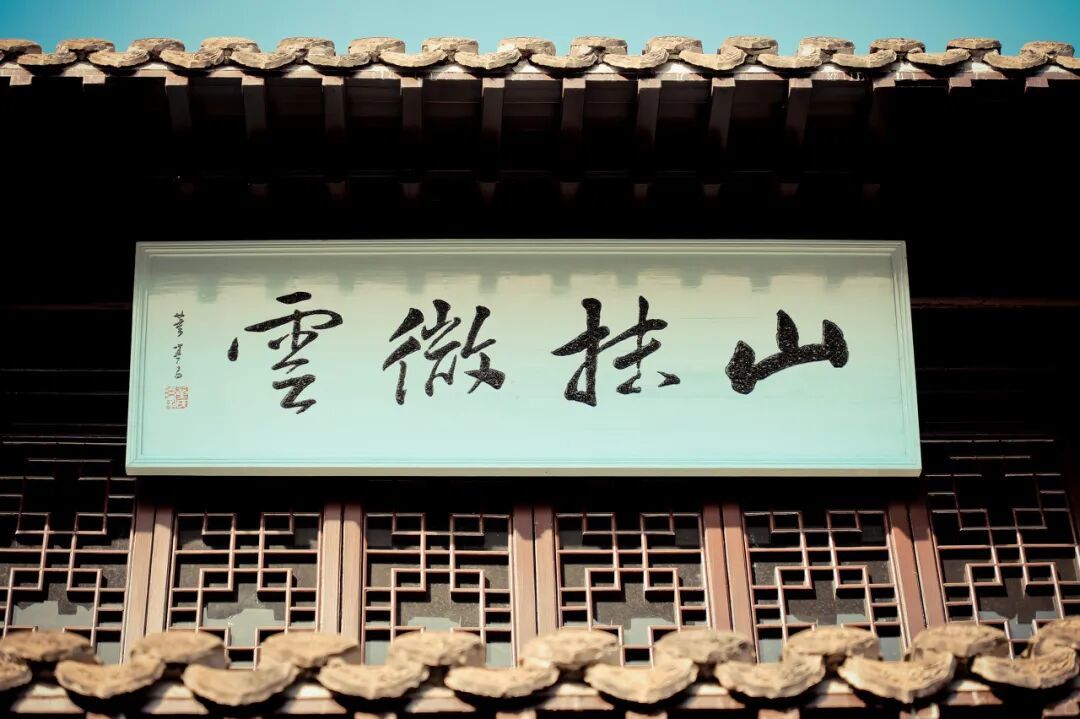 山抹微雲
董其昌